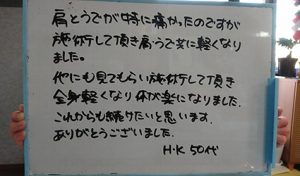 肩とうでが特に痛かったのですが
施術して頂き肩、うで共に軽くなり
ました。
他にも見てもらい施術して頂き
全身軽くなり体が楽になりました。
これからも続けたいと思います。
ありがとうございました。
H・K 50代